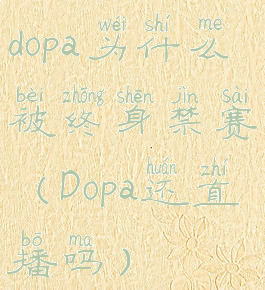 wéi shí me
dopa为什么
bèi zhōng shēn jìn sài
被终身禁赛
huán zhí
(Dopa还直
bō ma
播吗)